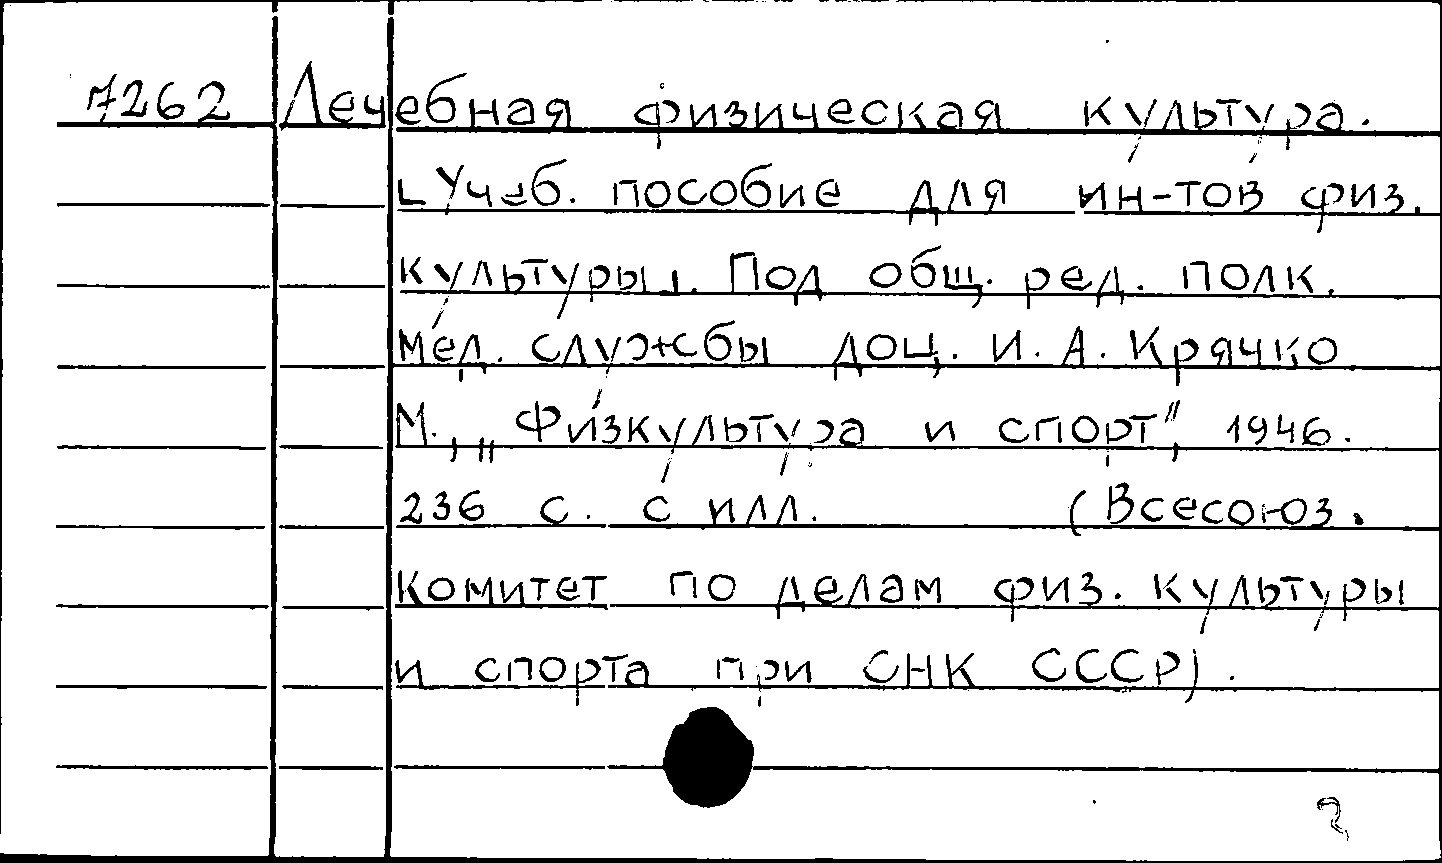 7262 Лечебная физическая культура.
[Учеб. пособие для ин-тов физ.
культуры]. Под общ. ред. полк.
мед. службы доц. И. А. Крячко
М., „Физкультура и спорт", 1946.
236 с. с илл. (Всесоюз.
комитет по делам физ. культуры
и спорта при СНК СССР).